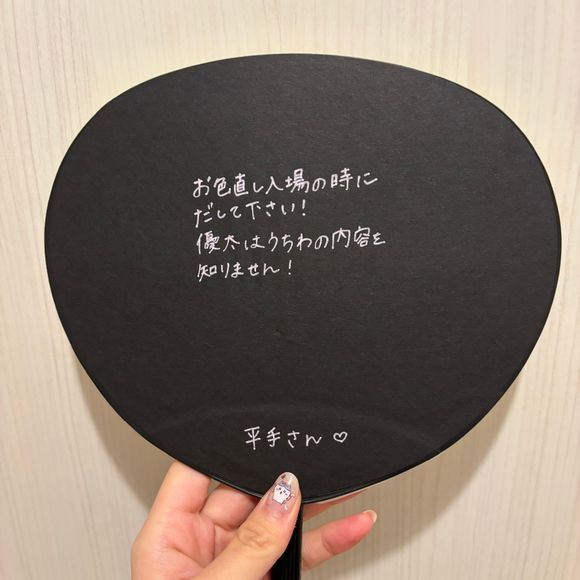 お色直し入場の時に
だして下さい!
優太はうちわの内容を
知りません!
平手さん♡